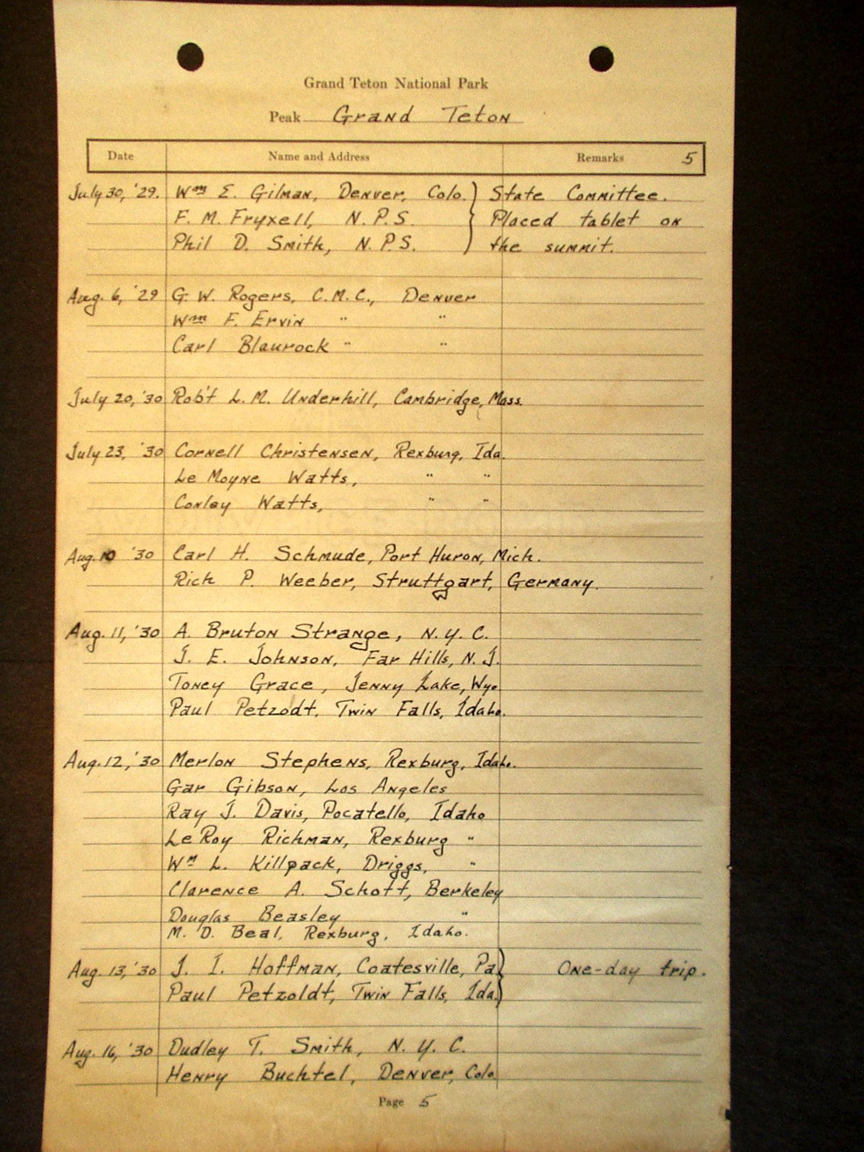 Grand Teton National Park
Peak Grand Teton
Date Name and Address Remarks 5
July 30, '29. Wm E. Gilman, Denver, Colo. } State Committee.
F. M. Fryxell, N.P.S. Placed tablet on
Phil D. Smith, N.P.S. the summit.
Aug. 6, '29 G. W. Rogers, C.M.C., Denver
Wm F. Ervin " "
Carl Blaurock " "
July 20, '30 Rob't L.M. Underhill, Cambridge, Mass.
July 23, '30 Cornell Christensen, Rexburg, Ida.
Le Moyne Watts, " "
Conley Watts, " "
Aug. 10 '30 Carl H. Schmude, Port Huron, Mich.
Rich P. Weeber, Struttgart, Germany.
Aug. 11, '30 A. Bruton Strange, N.Y.C.
J. E. Johnson, Far Hills, N.J.
Toney Grace, Jenny Lake, Wyo.
Paul Petzodt, Twin Falls, Idaho.
Aug. 12, '30 Merlon Stephens, Rexburg, Idaho.
Gar Gibson, Los Angeles
Ray J. Davis, Pocatello, Idaho
Le Roy Richman, Rexburg "
Wm L. Killpack, Driggs, "
Clarence A. Schott, Berkeley
Douglas Beasley "
M. D. Beal, Rexburg, Idaho.
Aug. 13, '30 J. I. Hoffman, Coatesville, Pa. } One-day trip.
Paul Petzoldt, Twin Falls, Ida.
Aug. 16, '30 Dudley T. Smith, N.Y.C.
Henry Buchtel, Denver, Colo.
Page 5